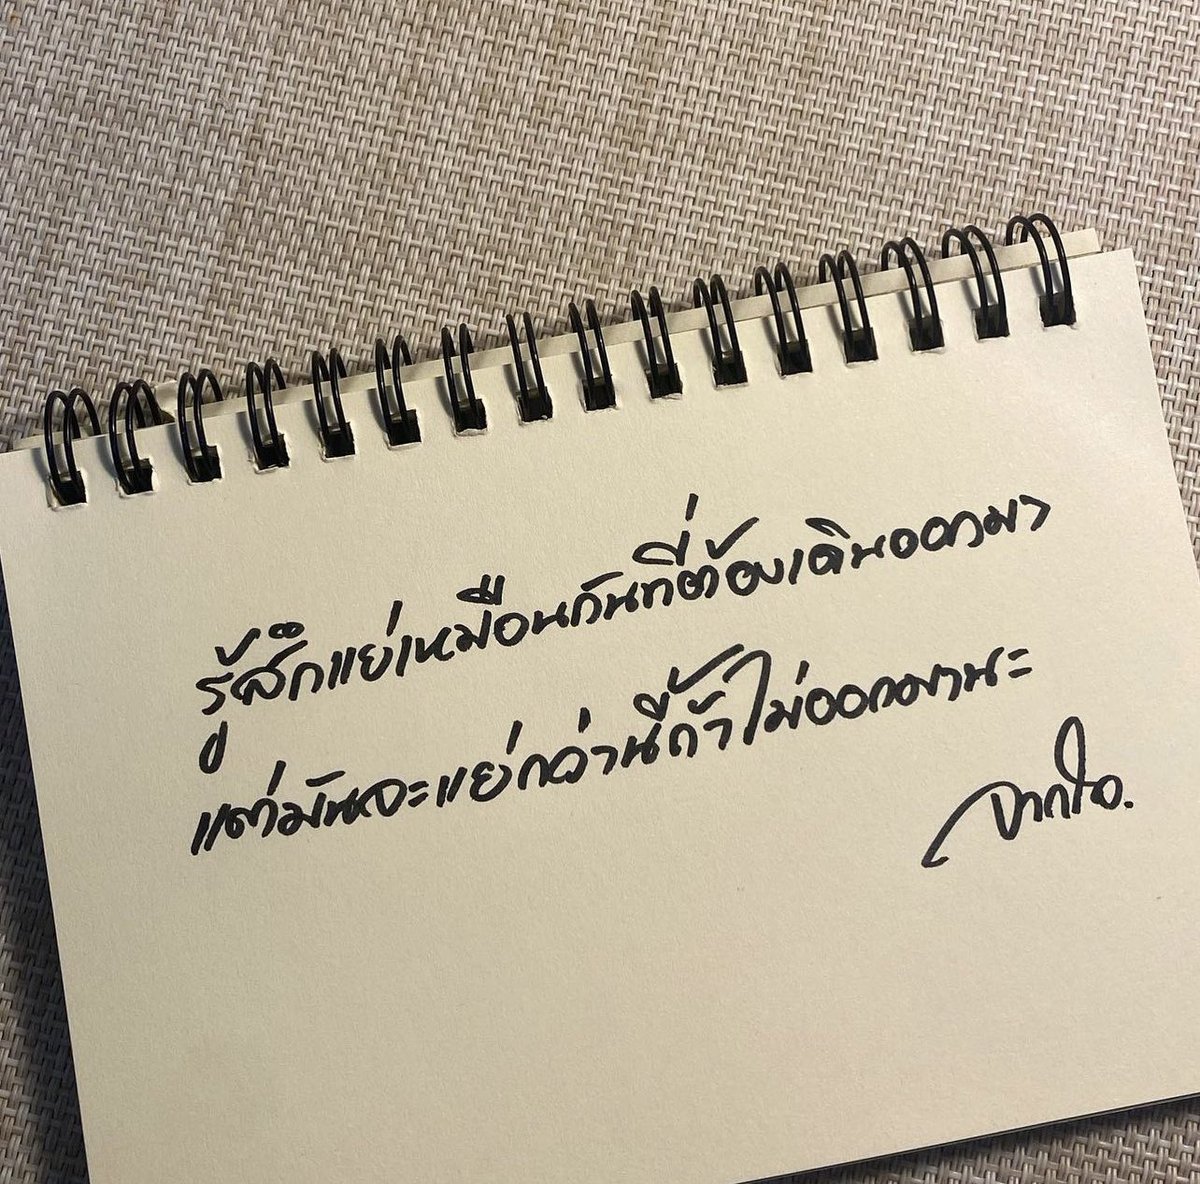 รู้สึกแย่เหมือนกันที่ต้องเดินออกมา
แต่มันจะแย่กว่านี้ถ้าไม่ออกมานะ
จากใจ.